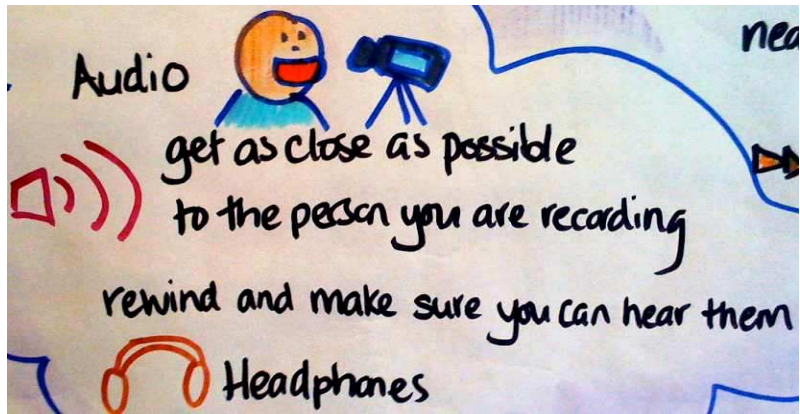 Audio
get as close as possible
to the person you are recording
rewind and make sure you can hear them
Headphones